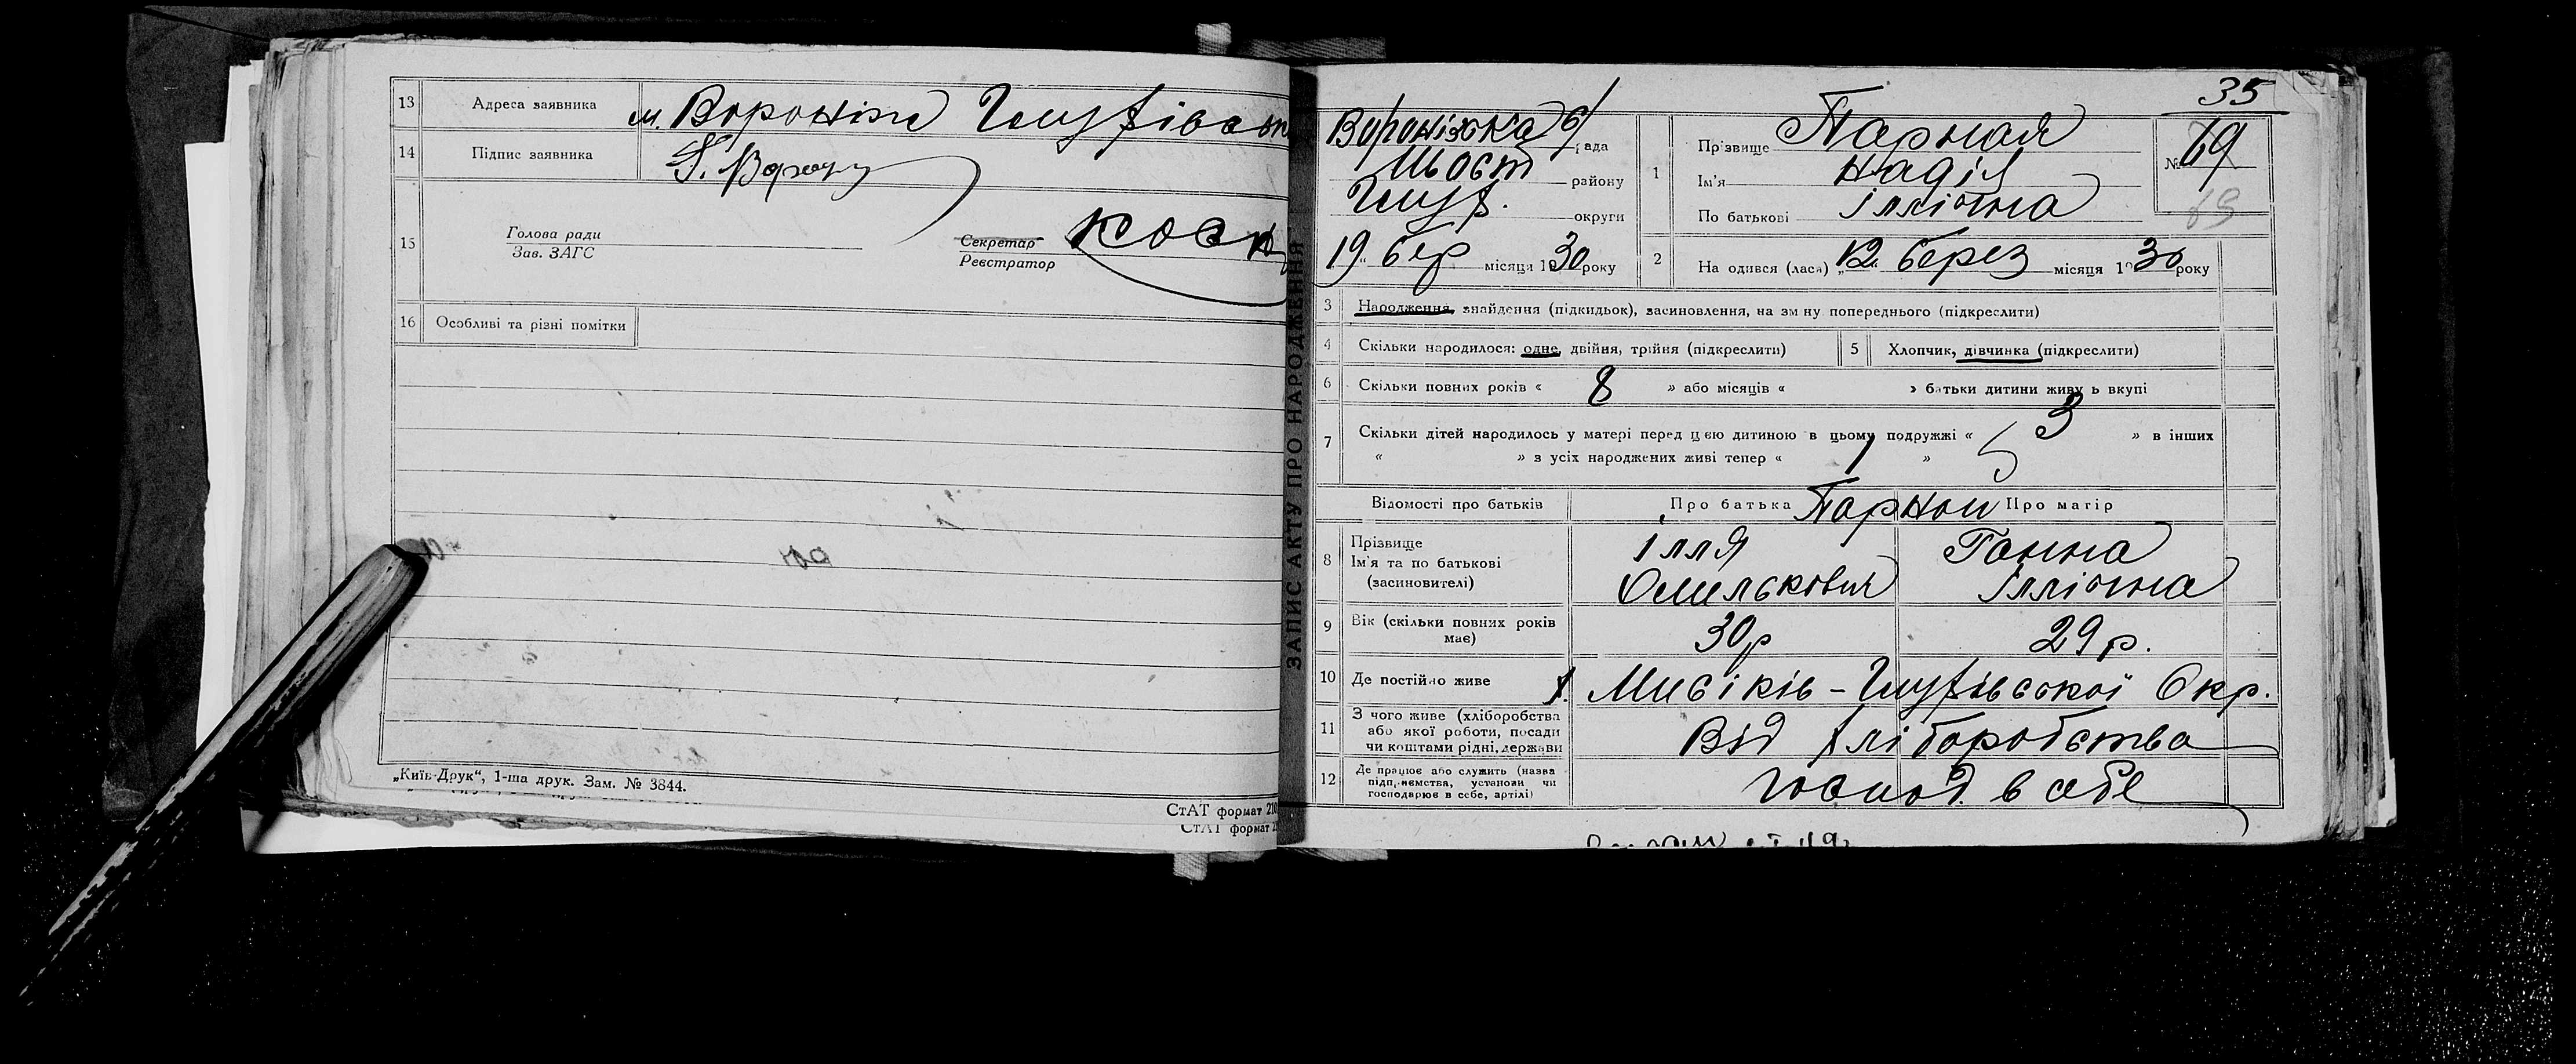 13 Адреса заявника м. Вороніж Глухівськ
14 Підпис заявника
15 Голова ради
Зав. ЗАГС
Секретар
Реєстратор
16 Особливі та різні помітки
„Київ-Друк“, 1-ша друк. Зам. № 3844.
СтАТ формат 210
СтАТ формат 2
ЗАПИС АКТУ ПРО НАРОДЖЕННЯ
35
Вороніжська с/рада
Шост району
Глух. округи
19 бер місяця 1930 року
1 Прізвище Парная
Ім'я Надія
По батькові Іллічна
№ 69
69
2 На одився (лася) „12“ берез місяця 1930 року
3 Народження, знайдення (підкидьок), засиновлення, на зм ну попереднього (підкреслити)
4 Скільки народилося: одне, двійня, трійня (підкреслити)
5 Хлопчик, дівчинка (підкреслити)
6 Скільки повних років « 8 » або місяців « » батьки дитини живу ь вкупі
7 Скільки дітей народилось у матері перед цією дитиною в цьому подружжі « 3 » в інших
« » з усіх народжених живі тепер « 1 »
Відомості про батьків Про батька Парной Про матір
8 Прізвище
Ім'я та по батькові
(засиновителі)
Ілля
Омелькович
Ганна
Іллічна
9 Вік (скільки повних років
має)
30р
29р.
10 Де постійно живе х. Мисіків - Глухівської Окр.
11 З чого живе (хліборобства
або якої роботи, посади
чи коштами рідні, держави
Від хліборобства
12 Де працює або служить (назва
підп,иємства, установи чи
господарює в себе, артілі)
господ. в себе